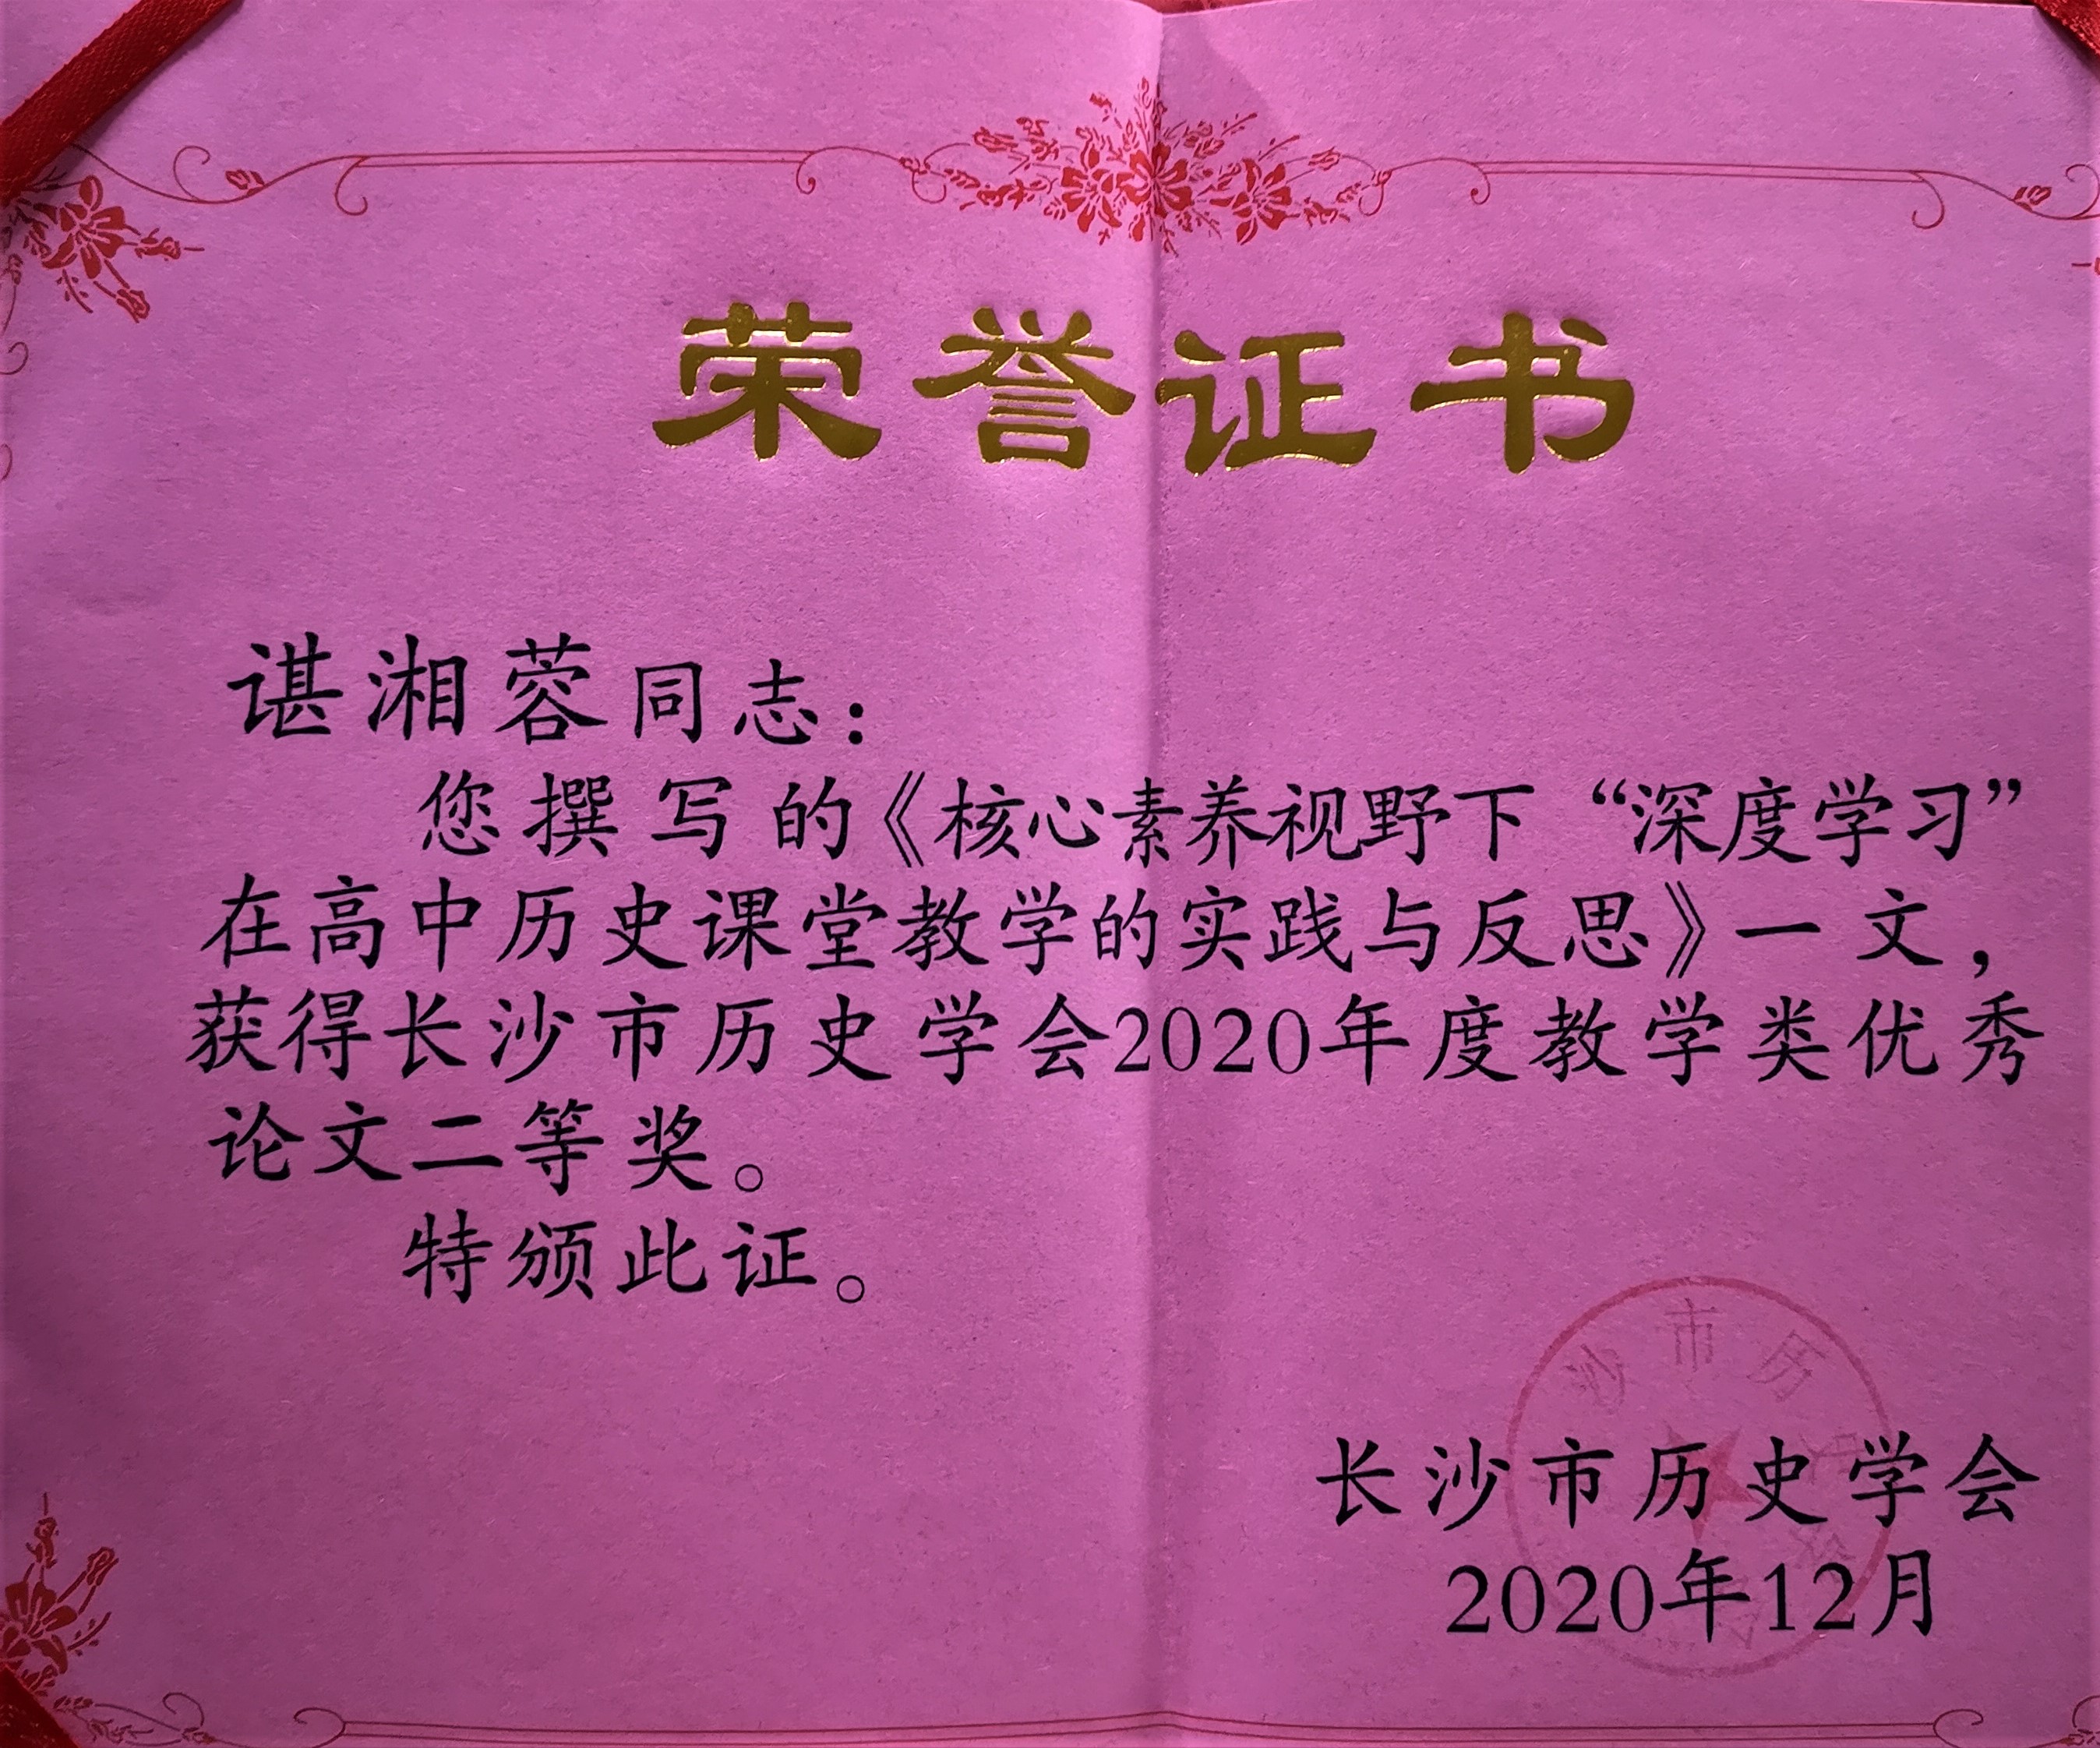 荣誉证书
谌湘蓉同志：
您撰写的《核心素养视野下“深度学习”
在高中历史课堂教学的实践与反思》一文，
获得长沙市历史学会2020年度教学类优秀
论文二等奖。
特颁此证。
沙市历
长沙市历史学会
2020年12月